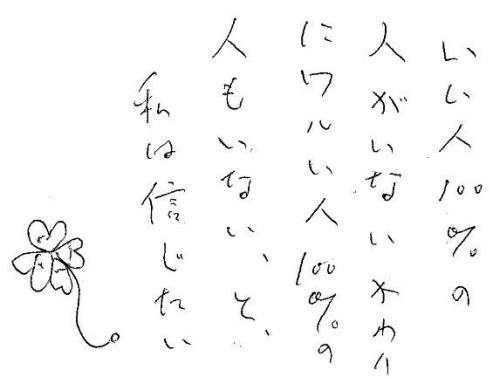 いい人100%の
人がいないかわり
にワルい人100%の
人もいない、と、
私は信じたい